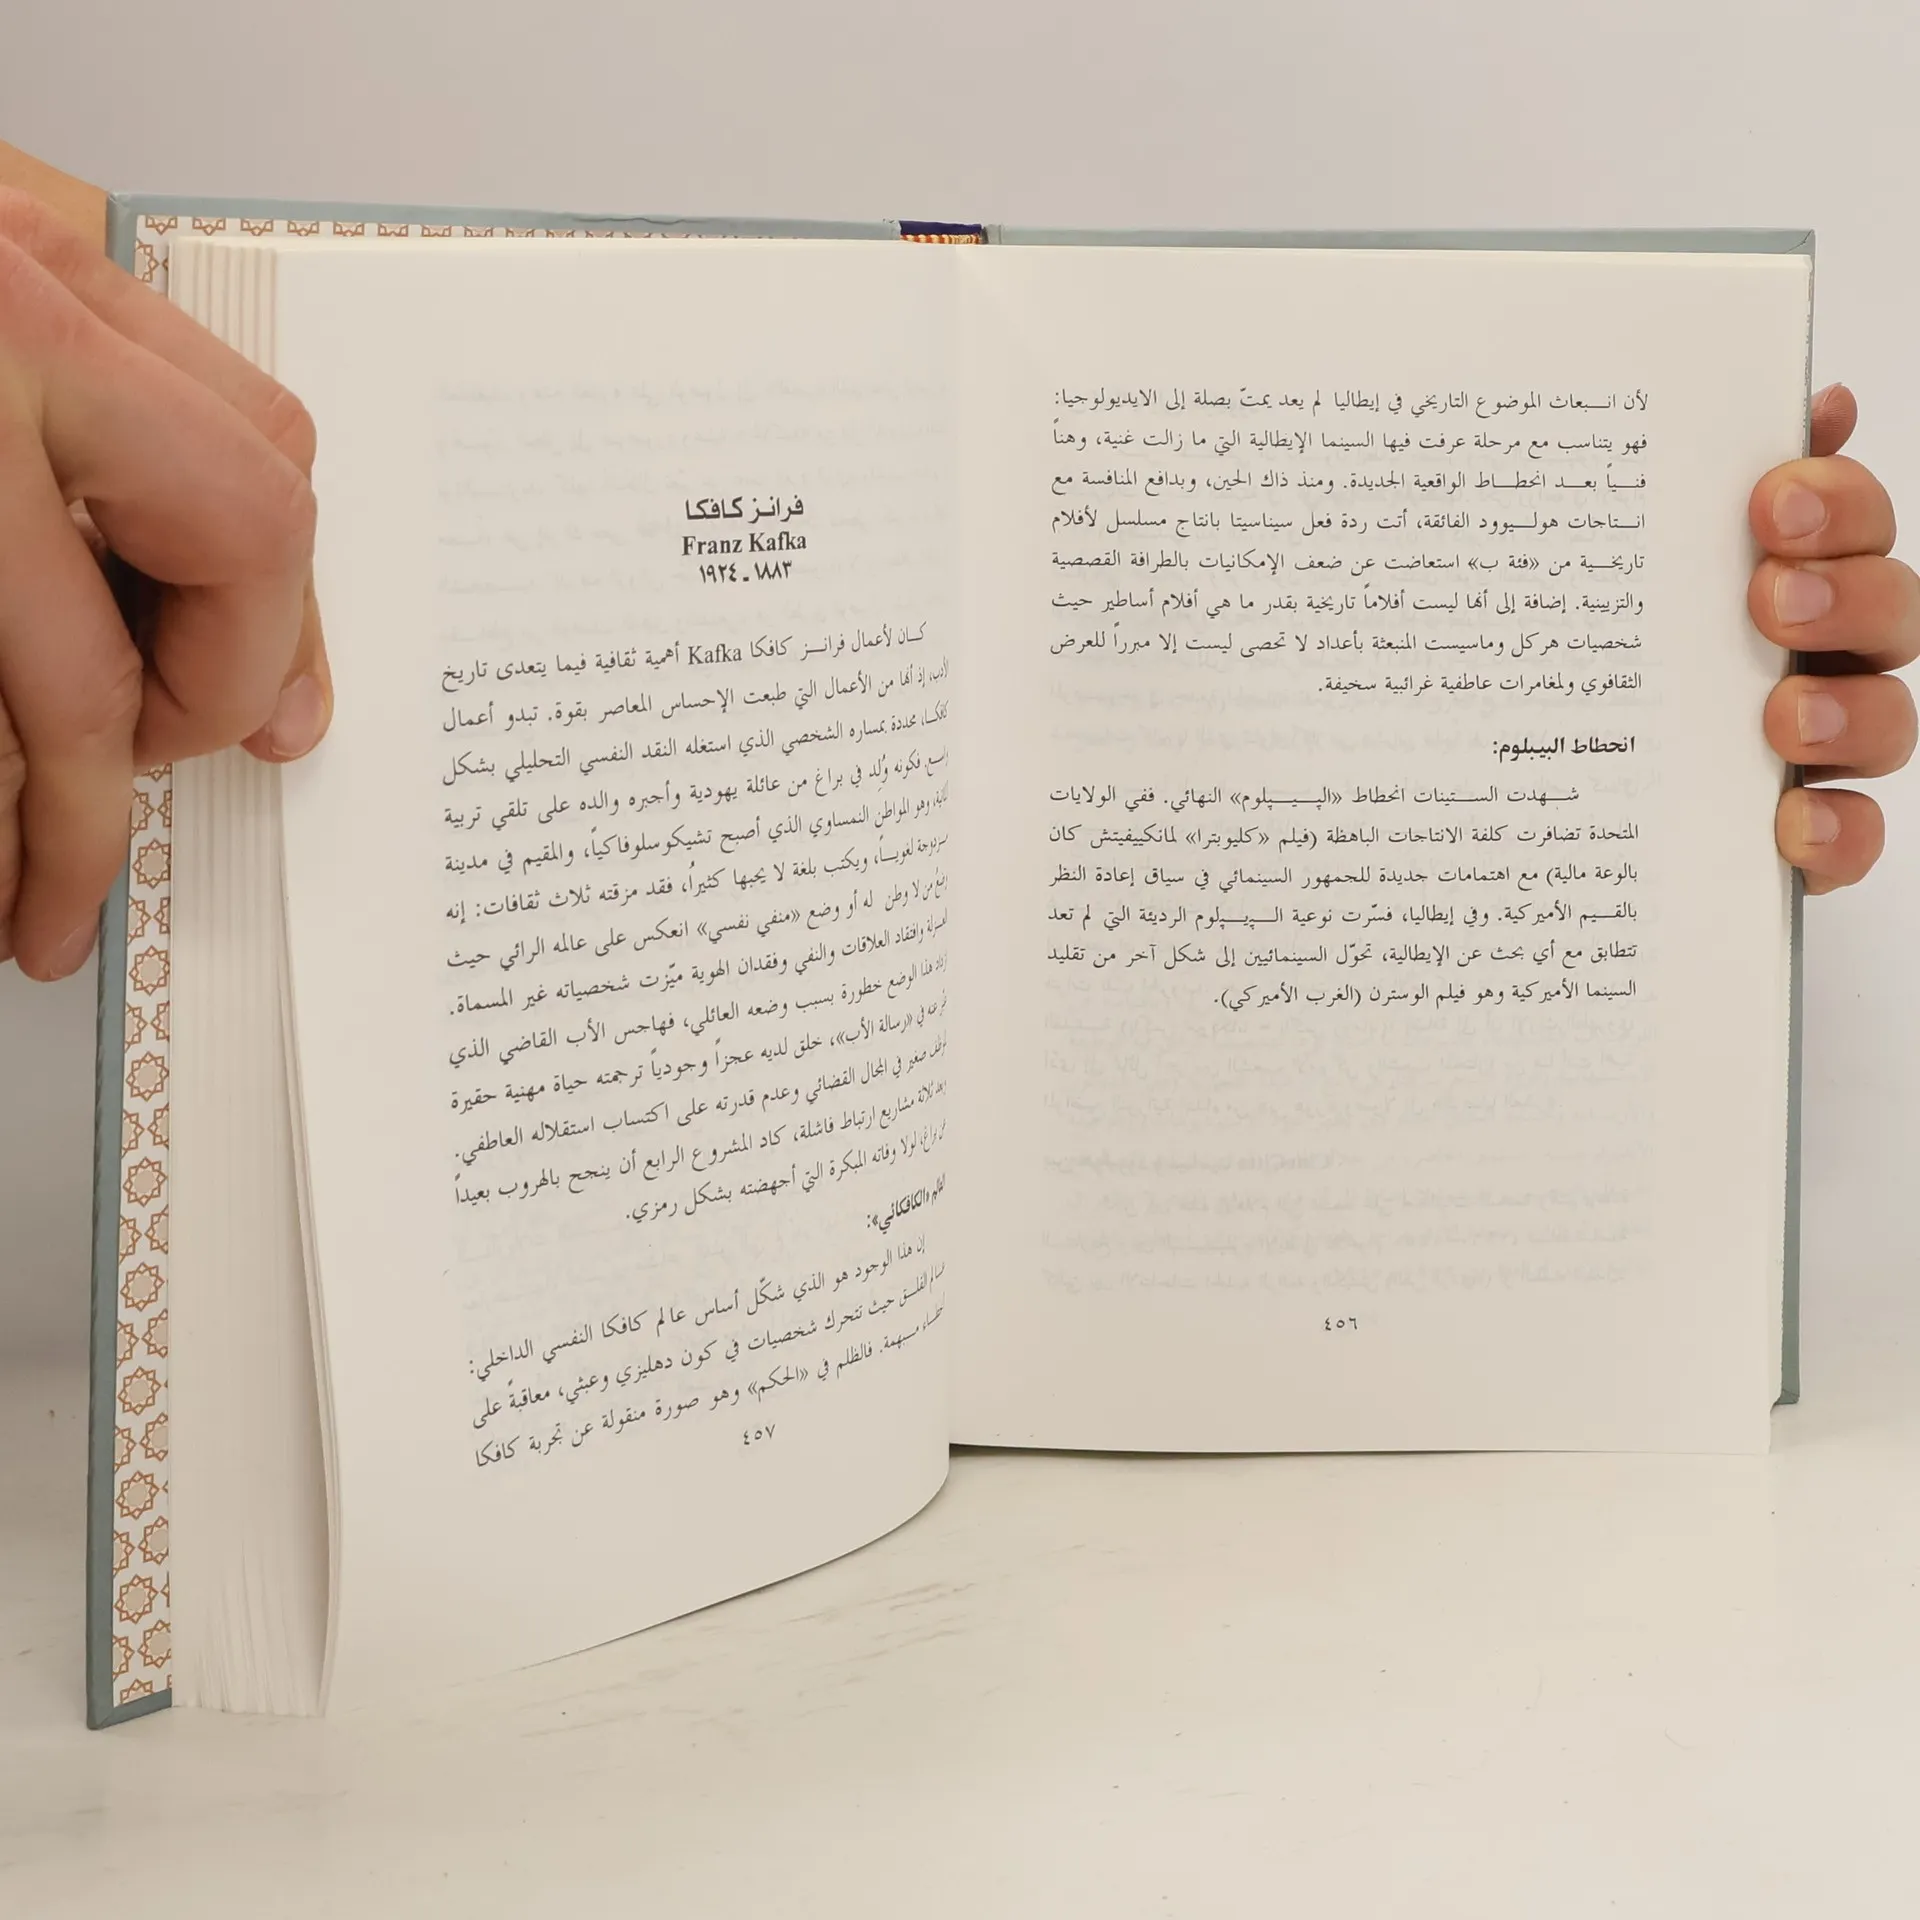 لأن انبعاث الموضوع التاريخي في إيطاليا لم يعد يمتّ بصلة إلى الايديولوجيا:
فهو يتناسب مع مرحلة عرفت فيها السينما الإيطالية التي ما زالت غنية، وهناً
فنياً بعد انحطاط الواقعية الجديدة. ومنذ ذاك الحين، وبدافع المنافسة مع
انتاجات هوليوود الفائقة، أتت ردة فعل سيناسيتا بانتاج مسلسل لأفلام
تاريخية من «فئة ب» استعاضت عن ضعف الإمكانيات بالطرافة القصصية
والتزيينية. إضافة إلى أنها ليست أفلاماً تاريخية بقدر ما هي أفلام أساطير حيث
شخصيات هركل وماسيست المنبعثة بأعداد لا تحصى ليست إلا مبرراً للعرض
الثقافوي ولمغامرات عاطفية غرائبية سخيفة.
انحطاط البيبلوم:
شهدت الستينات انحطاط «البيبلوم» النهائي. ففي الولايات
المتحدة تضافرت كلفة الانتاجات الباهظة (فيلم «كليوبترا» لمانكييفيتش كان
بالوعة مالية) مع اهتمامات جديدة للجمهور السينمائي في سياق إعادة النظر
بالقيم الأميركية. وفي إيطاليا، فسّرت نوعية البيبلوم الرديئة التي لم تعد
تتطابق مع أي بحث عن الإيطالية، تحوّل السينمائيين إلى شكل آخر من تقليد
السينما الأميركية وهو فيلم الوسترن (الغرب الأميركي).
٤٥٦
فرانز كافكا
Franz Kafka
١٨٨٣ ـ ١٩٢٤
كان لأعمال فرانز كافكا Kafka أهمية ثقافية فيما يتعدى تاريخ
الأدب، إذ أنها من الأعمال التي طبعت الإحساس المعاصر بقوة. تبدو أعمال
كافكا، محددة بمساره الشخصي الذي استغله النقد النفسي التحليلي بشكل
واسع. فكونه وُلد في براغ من عائلة يهودية وأجبره والده على تلقي تربية
وهو المواطن النمساوي الذي أصبح تشيكوسلوفاكياً، والمقيم في مدينة
مزدوجة لغوياً، ويكتب بلغة لا يحبها كثيراً، فقد مزقته ثلاث ثقافات: إنه
وضع من لا وطن له أو وضع «منفي نفسي» انعكس على عالمه الرائي حيث
العزلة وافتقاد العلاقات والنفي وفقدان الهوية ميّزت شخصياته غير المسماة.
ازداد هذا الوضع خطورة بسبب وضعه العائلي، فهاجس الأب القاضي الذي
عنه في «رسالة الأب»، خلق لديه عجزاً وجودياً ترجمته حياة مهنية حقيرة
صغير في المجال القضائي وعدم قدرته على اكتساب استقلاله العاطفي.
وبعد ثلاثة مشاريع ارتباط فاشلة، كاد المشروع الرابع أن ينجح بالهروب بعيداً
عن براغ، لولا وفاته المبكرة التي أجهضته بشكل رمزي.
العالم «الكافكائي»:
إن هذا الوجود هو الذي شكّل أساس عالم كافكا النفسي الداخلي:
عالم القلق حيث تتحرك شخصيات في كون دهليزي وعبثي، معاقبةً على
أخطاء مبهمة. فالظلم في «الحكم» وهو صورة منقولة عن تجربة كافكا
٤٥٧